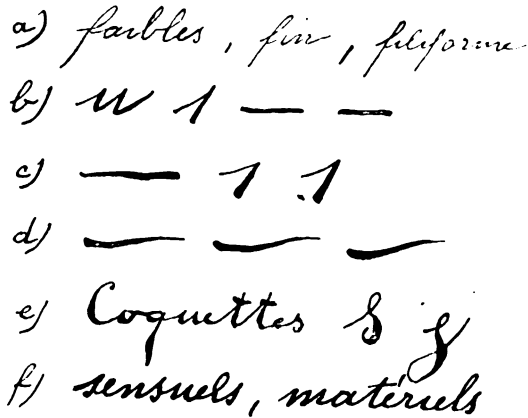 a) faibles, fin, filiforme
b) u 1 — —
c) — 1 .1
d) — — —
e) Coquettes S g
f) sensuels, matériels